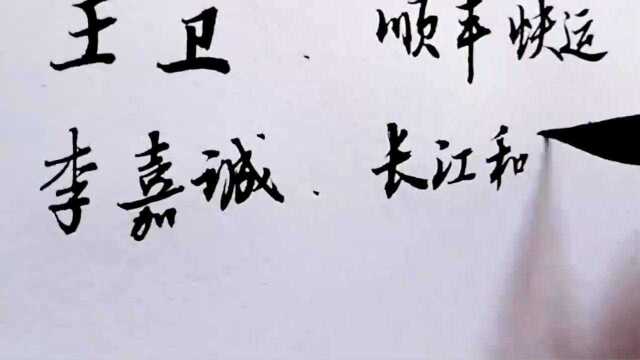 王卫.顺丰快运
李嘉诚.长江和